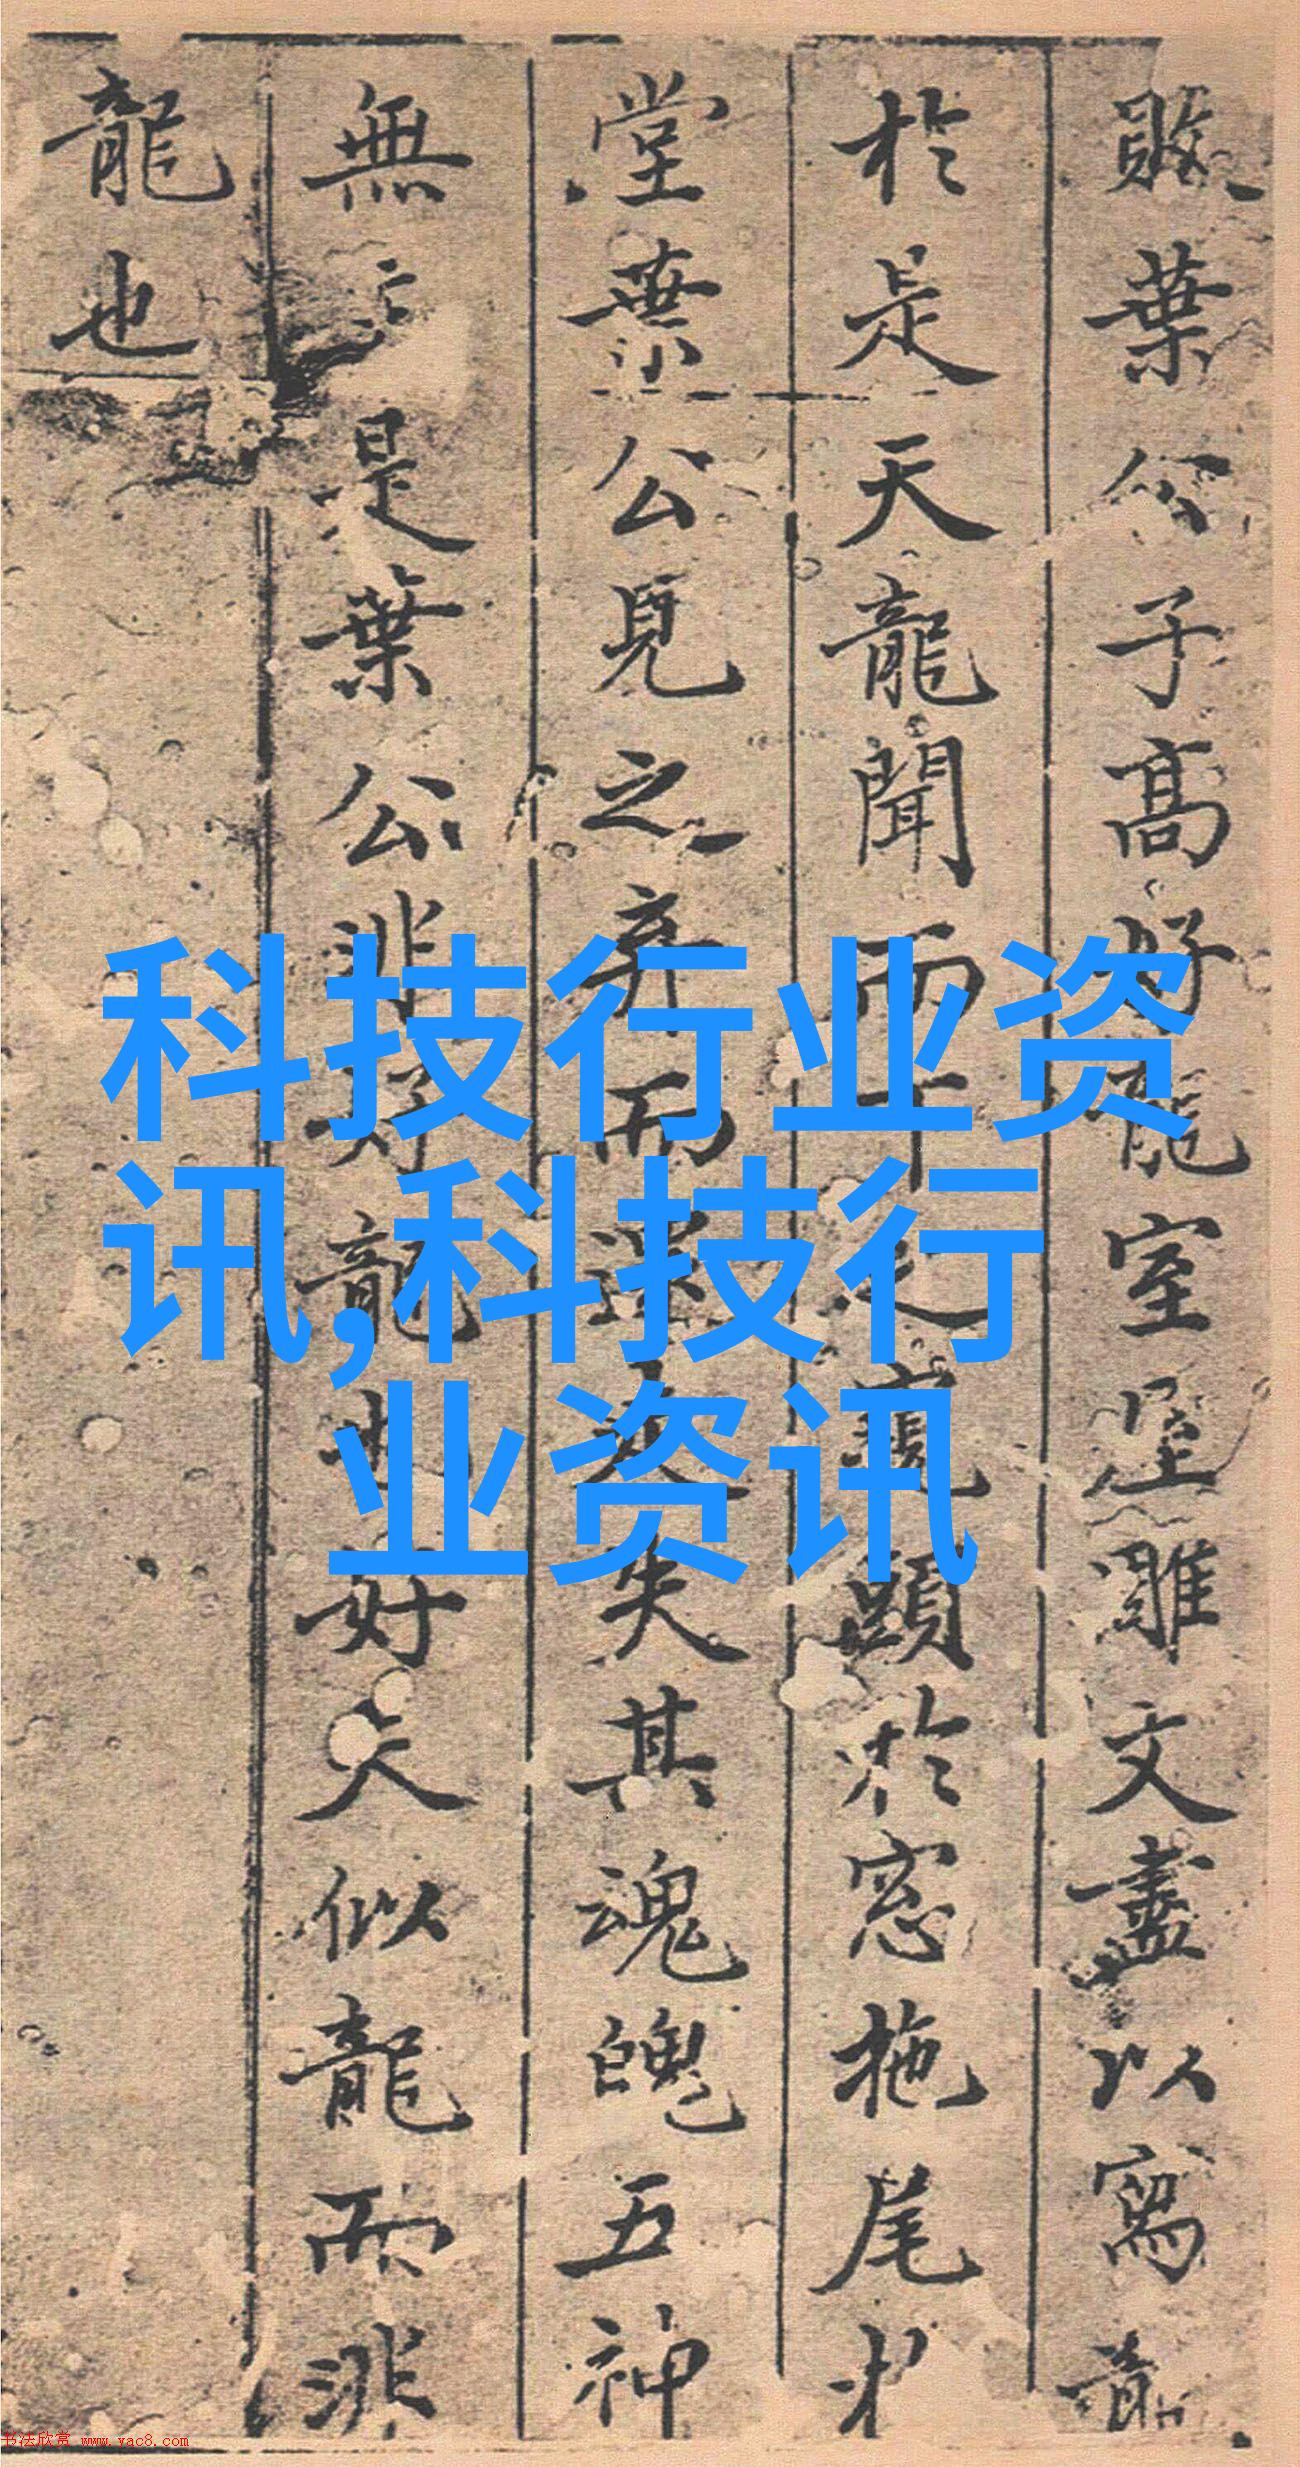 敗葉公子髙好龍室堂雕文盡以寫龍
於是天龍聞而下之窺頭於窓拖尾於
堂葉公見之弃而還走失其魂魄五神
無主是葉公非好龍也好夫似龍而非
龍也
科技行业资
讯,科技行
业资讯
书法欣赏 www.yac8.com